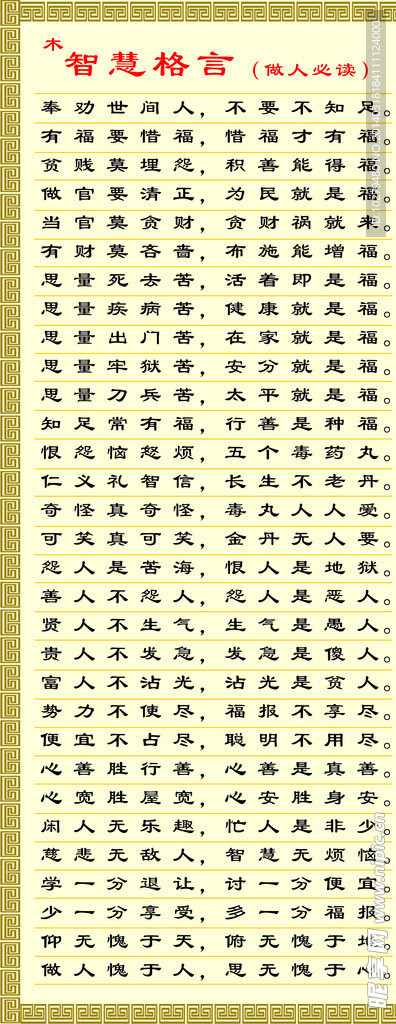 木
智慧格言（做人必读）
奉劝世间人，不要不知足。
有福要惜福，惜福才有福。
贫贱莫埋怨，积善能得福。
做官要清正，为民就是福。
当官莫贪财，贪财祸就来。
有财莫吝啬，布施能增福。
思量死去苦，活着即是福。
思量疾病苦，健康就是福。
思量出门苦，在家就是福。
思量牢狱苦，安分就是福。
思量刀兵苦，太平就是福。
知足常有福，行善是种福。
恨怨恼怒烦，五个毒药丸。
仁义礼智信，长生不老丹。
奇怪真奇怪，毒丸人人爱。
可笑真可笑，金丹无人要。
怨人是苦海，恨人是地狱。
善人不怨人，怨人是恶人。
贤人不生气，生气是愚人。
贵人不发急，发急是傻人。
富人不沾光，沾光是贫人。
势力不使尽，福报不享尽。
便宜不占尽，聪明不用尽。
心善胜行善，心善是真善。
心宽胜屋宽，心安胜身安。
闲人无乐趣，忙人是非少。
慈悲无敌人，智慧无烦恼。
学一分退让，讨一分便宜。
少一分享受，多一分福报。
仰无愧于天，俯无愧于地。
做人愧于人，思无愧于心。
昵享网 www.nipic.cn